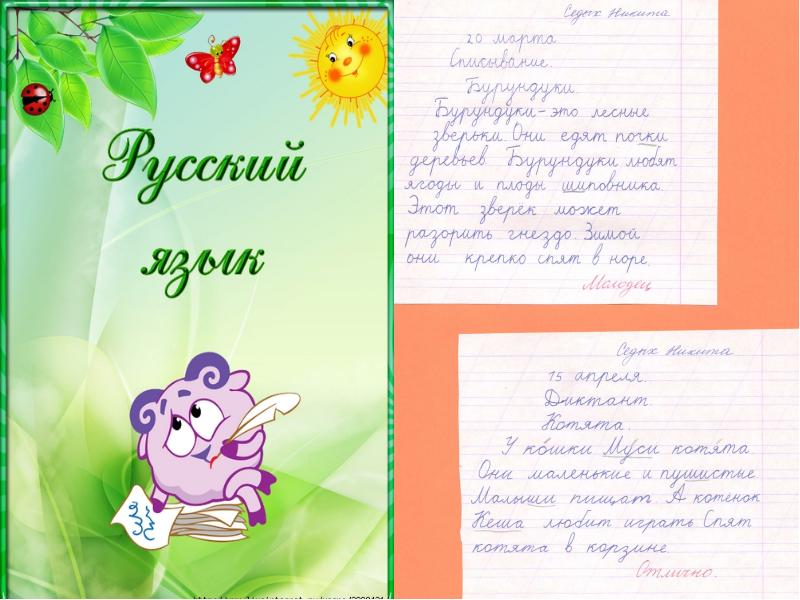 Русский
язык
Седых Никита
20 марта
Списывание.
Бурундуки.
Бурундуки-это лесные
зверьки. Они едят почки
деревьев Бурундуки любят
ягоды и плоды шиповника.
Этот зверёк может
разорить гнездо. Зимой
они крепко спят в норе.
Молодец
Седых Никита
15 апреля.
Диктант.
Котята.
У кошки Муси котята.
Они маленькие и пушистые.
Малыши пищат. А котёнок
Кеша любит играть Спят
котята в корзине.
Отлично.